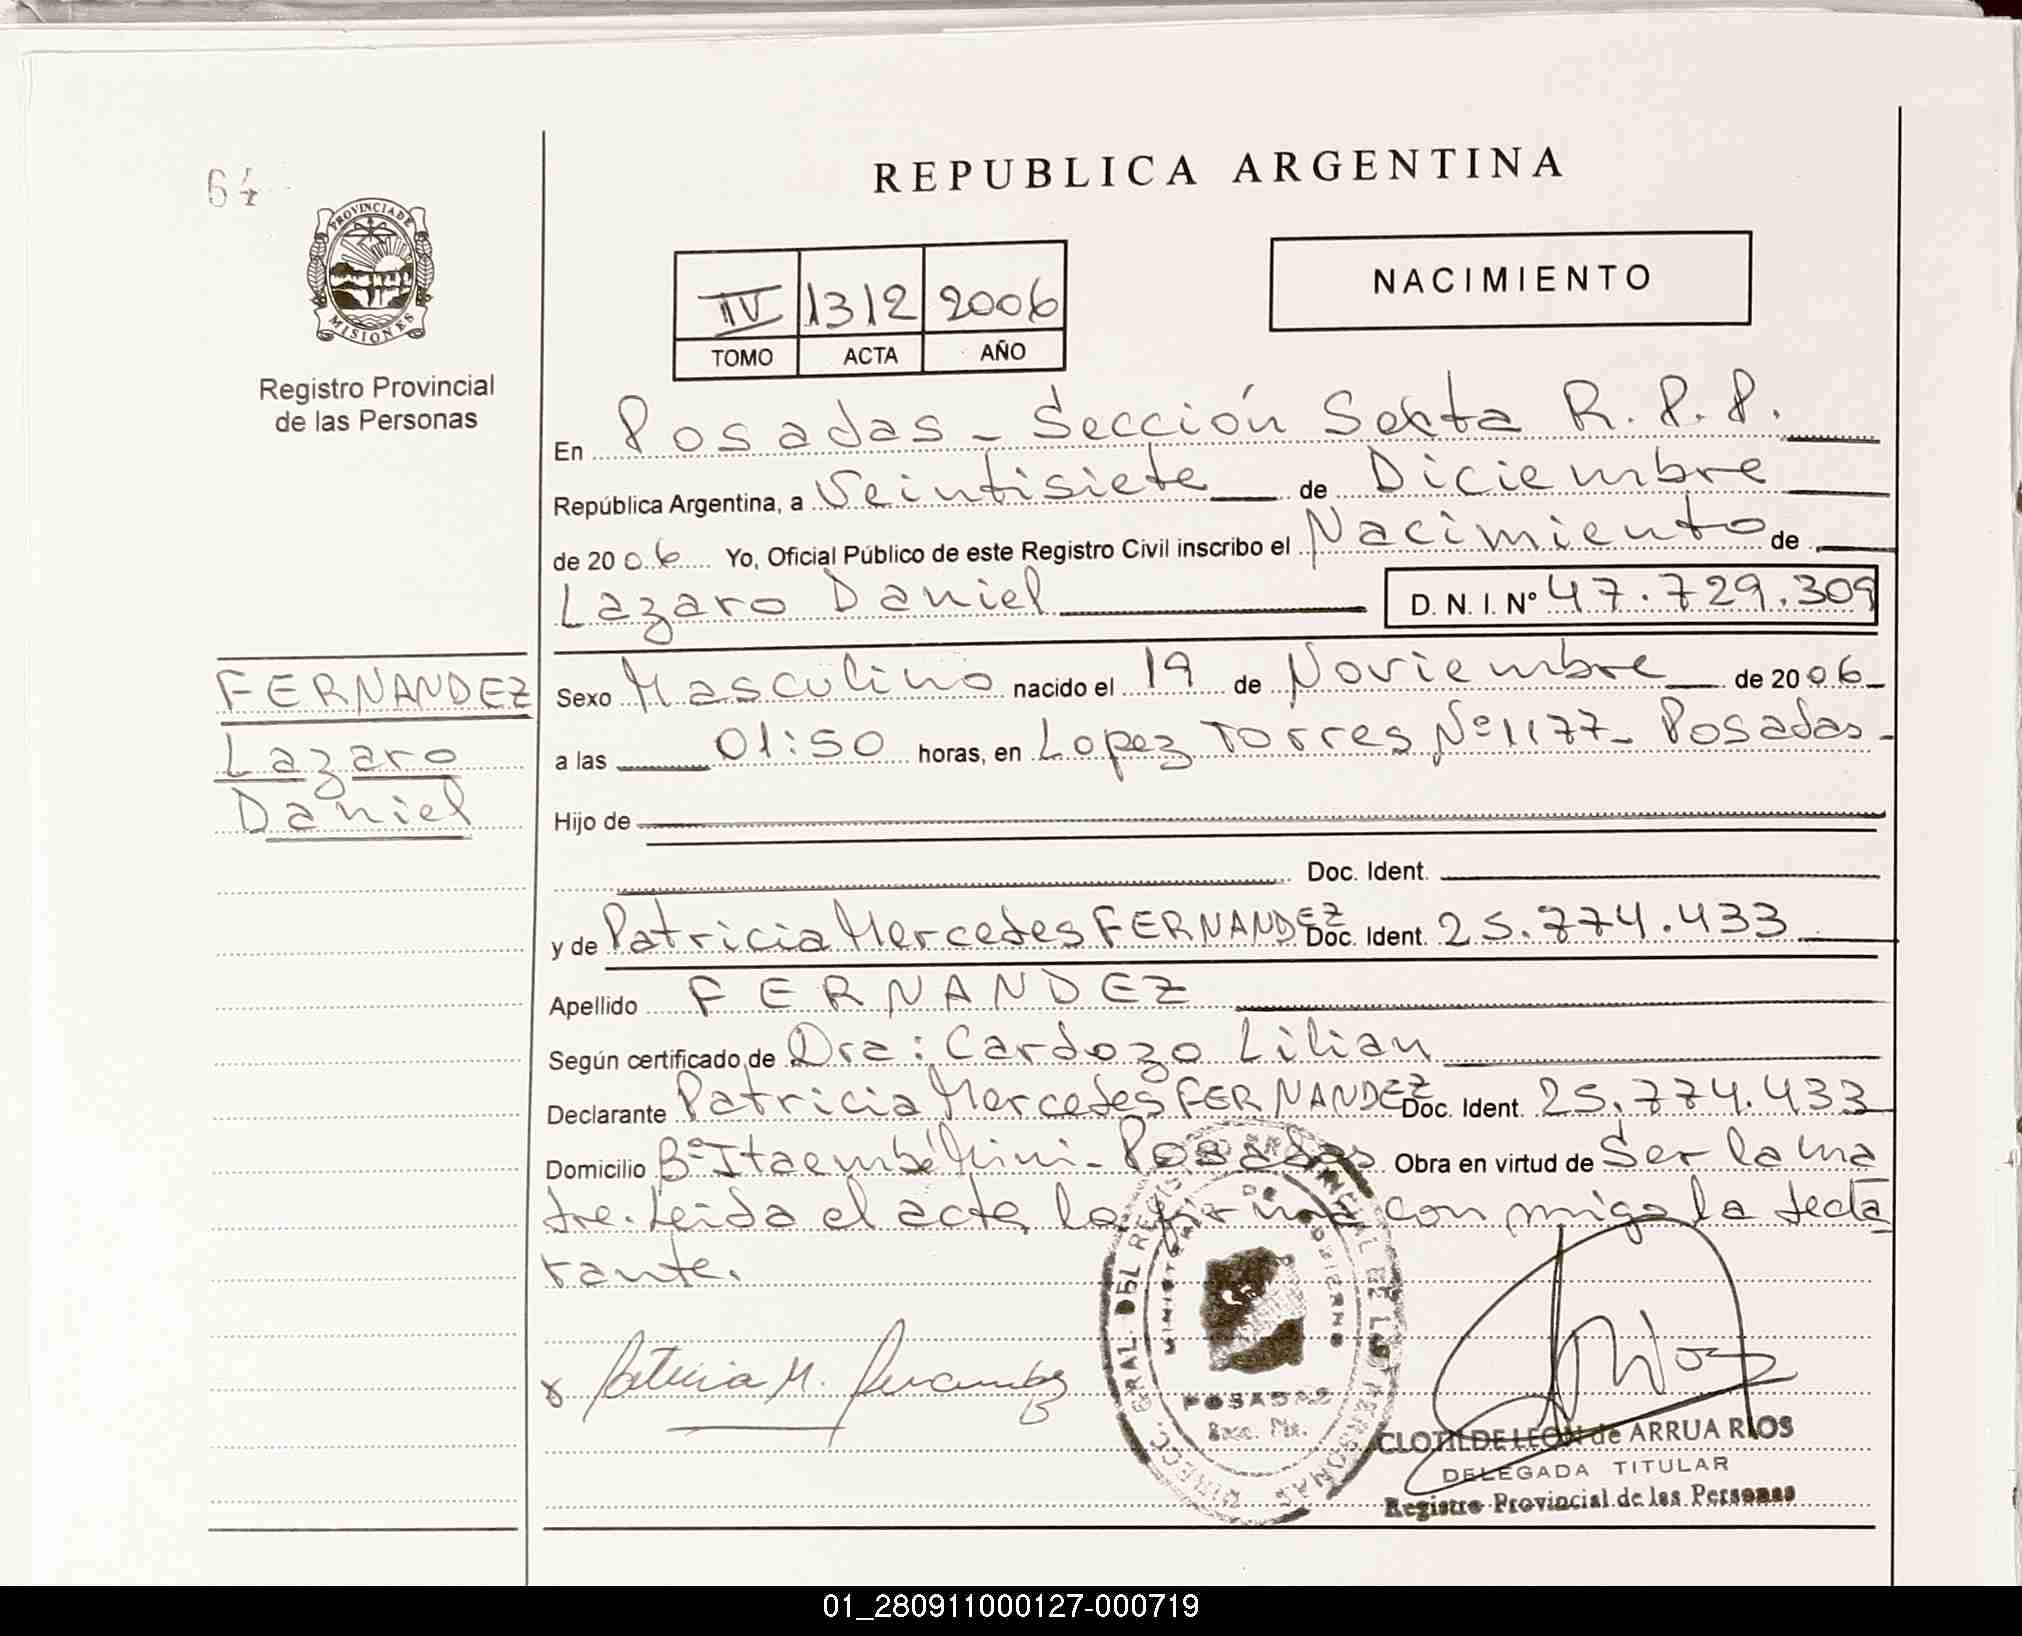 64
PROVINCIA DE
MISIONES
Registro Provincial
de las Personas
REPUBLICA ARGENTINA
IV 1312 2006
TOMO ACTA AÑO
NACIMIENTO
En Posadas - Sección Sexta R.P.P.
República Argentina, a Veintisiete de Diciembre
de 2006 Yo, Oficial Público de este Registro Civil inscribo el Nacimiento de
Lazaro Daniel D. N. I. Nº 47.729.309
FERNANDEZ
Lazaro
Daniel
Sexo Masculino nacido el 19 de Noviembre de 2006
a las 01:50 horas, en Lopez Torres Nº 1177 - Posadas -
Hijo de
Doc. Ident.
y de Patricia Mercedes FERNANDEZ Doc. Ident. 25.774.433
Apellido FERNANDEZ
Según certificado de Dra: Cardozo Lilian
Declarante Patricia Mercedes FERNANDEZ Doc. Ident. 25.774.433
Domicilio Bº Itaembé Mini - Posadas Obra en virtud de Ser la ma
dre. Leida el acta, la firma con migo la decla
rante.
x Patricia M. Fernandez
DIRECC. GRAL. DEL REGISTRO PROVINCIAL DE LAS PERSONAS
MINISTERIO DE GOBIERNO
POSADAS
CLOTILDE LEON de ARRUA RIOS
DELEGADA TITULAR
Registro Provincial de las Personas
01_280911000127-000719